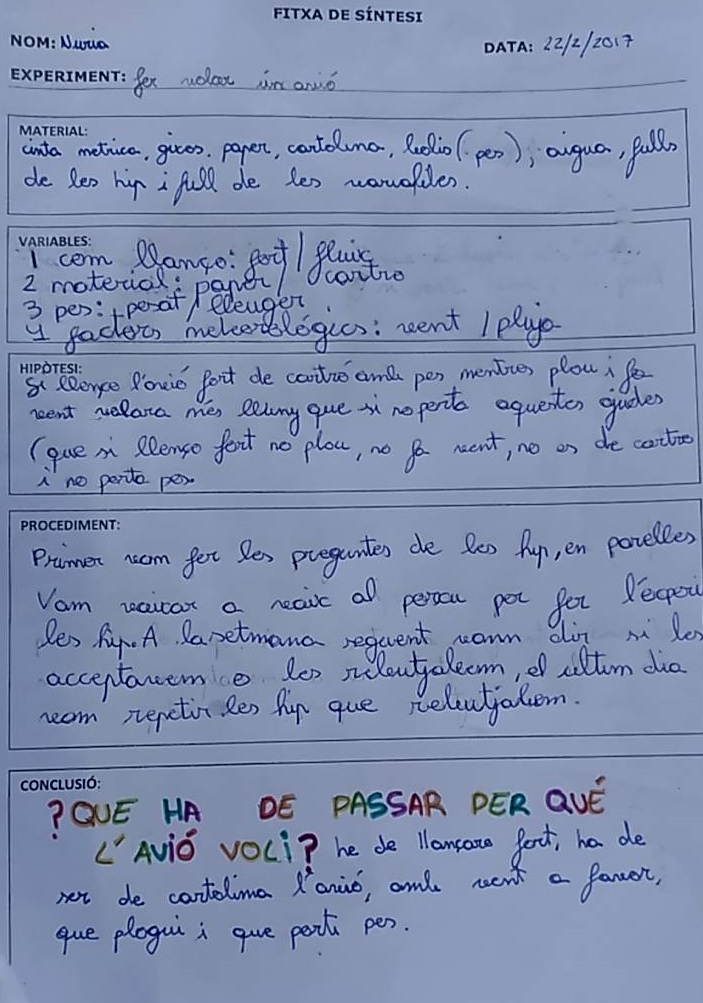 FITXA DE SÍNTESI
NOM: Nuria
DATA: 22/2/2017
EXPERIMENT: fer volar un avió
MATERIAL:
cinta metrica, gicos, paper, cartolina, ledio (pes), aigua, fulls
de les hip i full de les variables.
VARIABLES:
1 com llanço: fort / fluix
2 material: paper / cartro
3 pes: pesat / lleuger
4 factors meteorològics: vent / pluja
HIPÒTESI:
Si llenço l'avió fort de cartró amb pes mentres plou i fa
vent volara més lluny que si no porta aquestes ajudes
(que si llenço fort no plou, no fa vent, no es de cartro
i no porta pes
PROCEDIMENT:
Primer vam fer les preguntes de les hip, en parelles
Vam a baix al per fer l'experi
les hip. A la setmana seguent vam dir si les
acceptavem o les, el ultim dia
vam repetir les hip que
CONCLUSIÓ:
? QUE HA DE PASSAR PER QUÉ
L'AVIÓ VOLI? he de llançara fort, ha de
ser de cartolima l'avió, amb vent a favor,
que plogui i que porti pes.